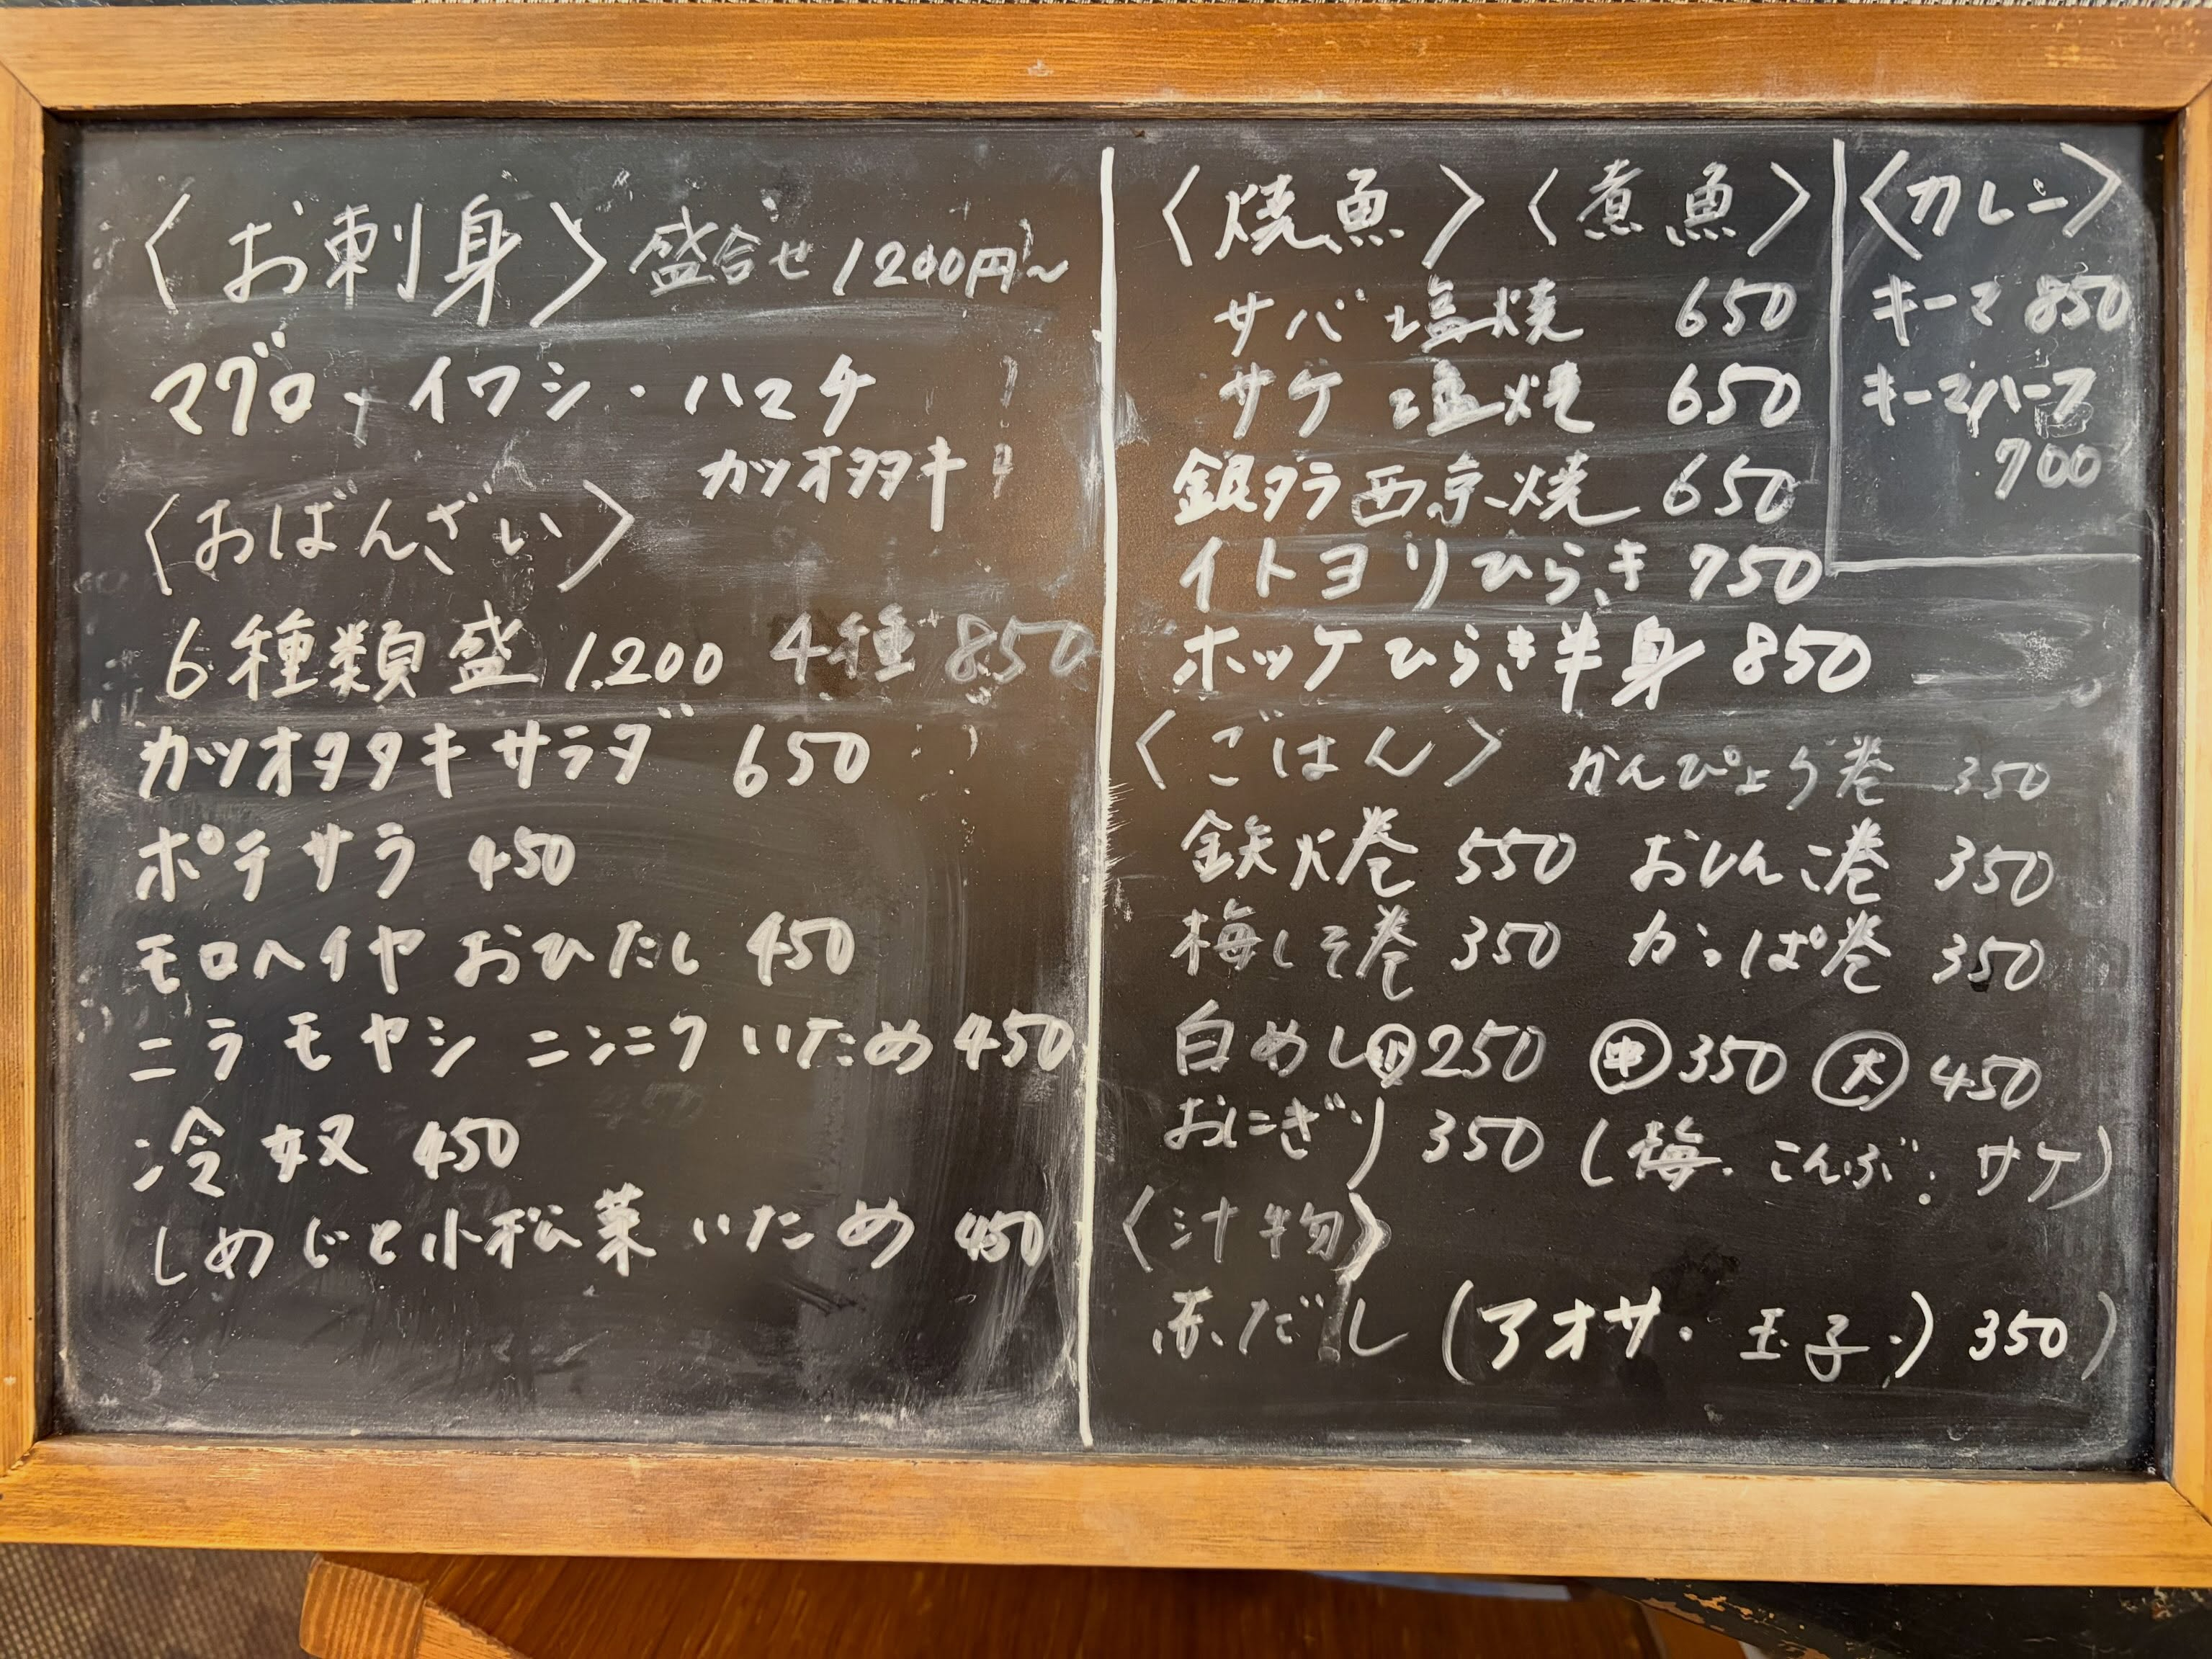 〈お刺身〉盛合せ 1200円~
マグロ・イワシ・ハマチ
カツオタタキ
〈おばんざい〉
6種類盛 1.200 4種 850
カツオタタキサラダ 650
ポテサラ 450
モロヘイヤ おひたし 450
ニラモヤシ ニンニクいため 450
冷奴 450
しめじと小松菜いため 450
〈焼魚〉〈煮魚〉
サバ塩焼 650
サケ塩焼 650
銀タラ西京焼 650
イトヨリひらき 750
ホッケひらき半身 850
〈カレー〉
キーマ 850
キーマハーフ
700
〈ごはん〉 かんぴょう巻 350
鉄火巻 550 おしんこ巻 350
梅しそ巻 350 かっぱ巻 350
白めし㊙250 ㊥350 ㊤450
おにぎり 350 (梅・こんぶ・サケ)
〈汁物〉
赤だし (アオサ・玉子・) 350)